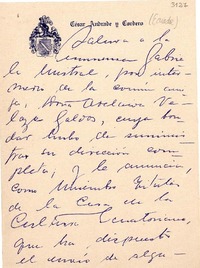 3122
César Andrade y Cordero
(Ecuador)
Saluda a la
eminente Gabrie
la Mistral, por inter-
medio de la común ami-
ga, Ve-
laza Galdos, cuya bon-
dad hubo de suminis-
trar su dirección com-
pleta; y le anuncia,
como Miembro Titular
de la Casa de la
Cultura Ecuatoriana,
que ha dispuesto
el envío de algu-